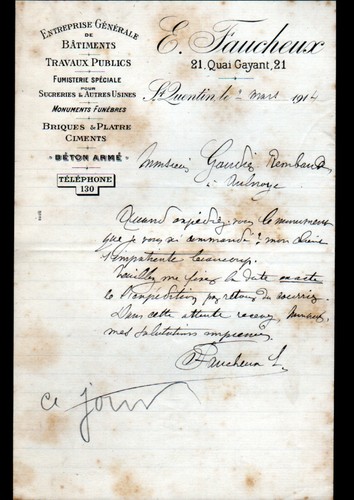 ENTREPRISE GÉNÉRALE
DE
BÂTIMENTS
TRAVAUX PUBLICS
FUMISTERIE SPÉCIALE
POUR
SUCRERIES & AUTRES USINES
MONUMENTS FUNÈBRES
BRIQUES & PLATRE
CIMENTS
BÉTON ARMÉ
TÉLÉPHONE
130
E. Faucheux
21, Quai Gayant, 21
St Quentin, le 2 mars 1914
Monsieur Gaudier Rembaux
à Aulnoye
Quand expédiez-vous le monument
que je vous ai commandé? mon client
s'impatiente beaucoup.
Veuillez me fixer la date exacte
de l'expédition par retour du courrier.
Dans cette attente recevez, Monsieur,
mes salutations empressées
Faucheux E.
ce jour